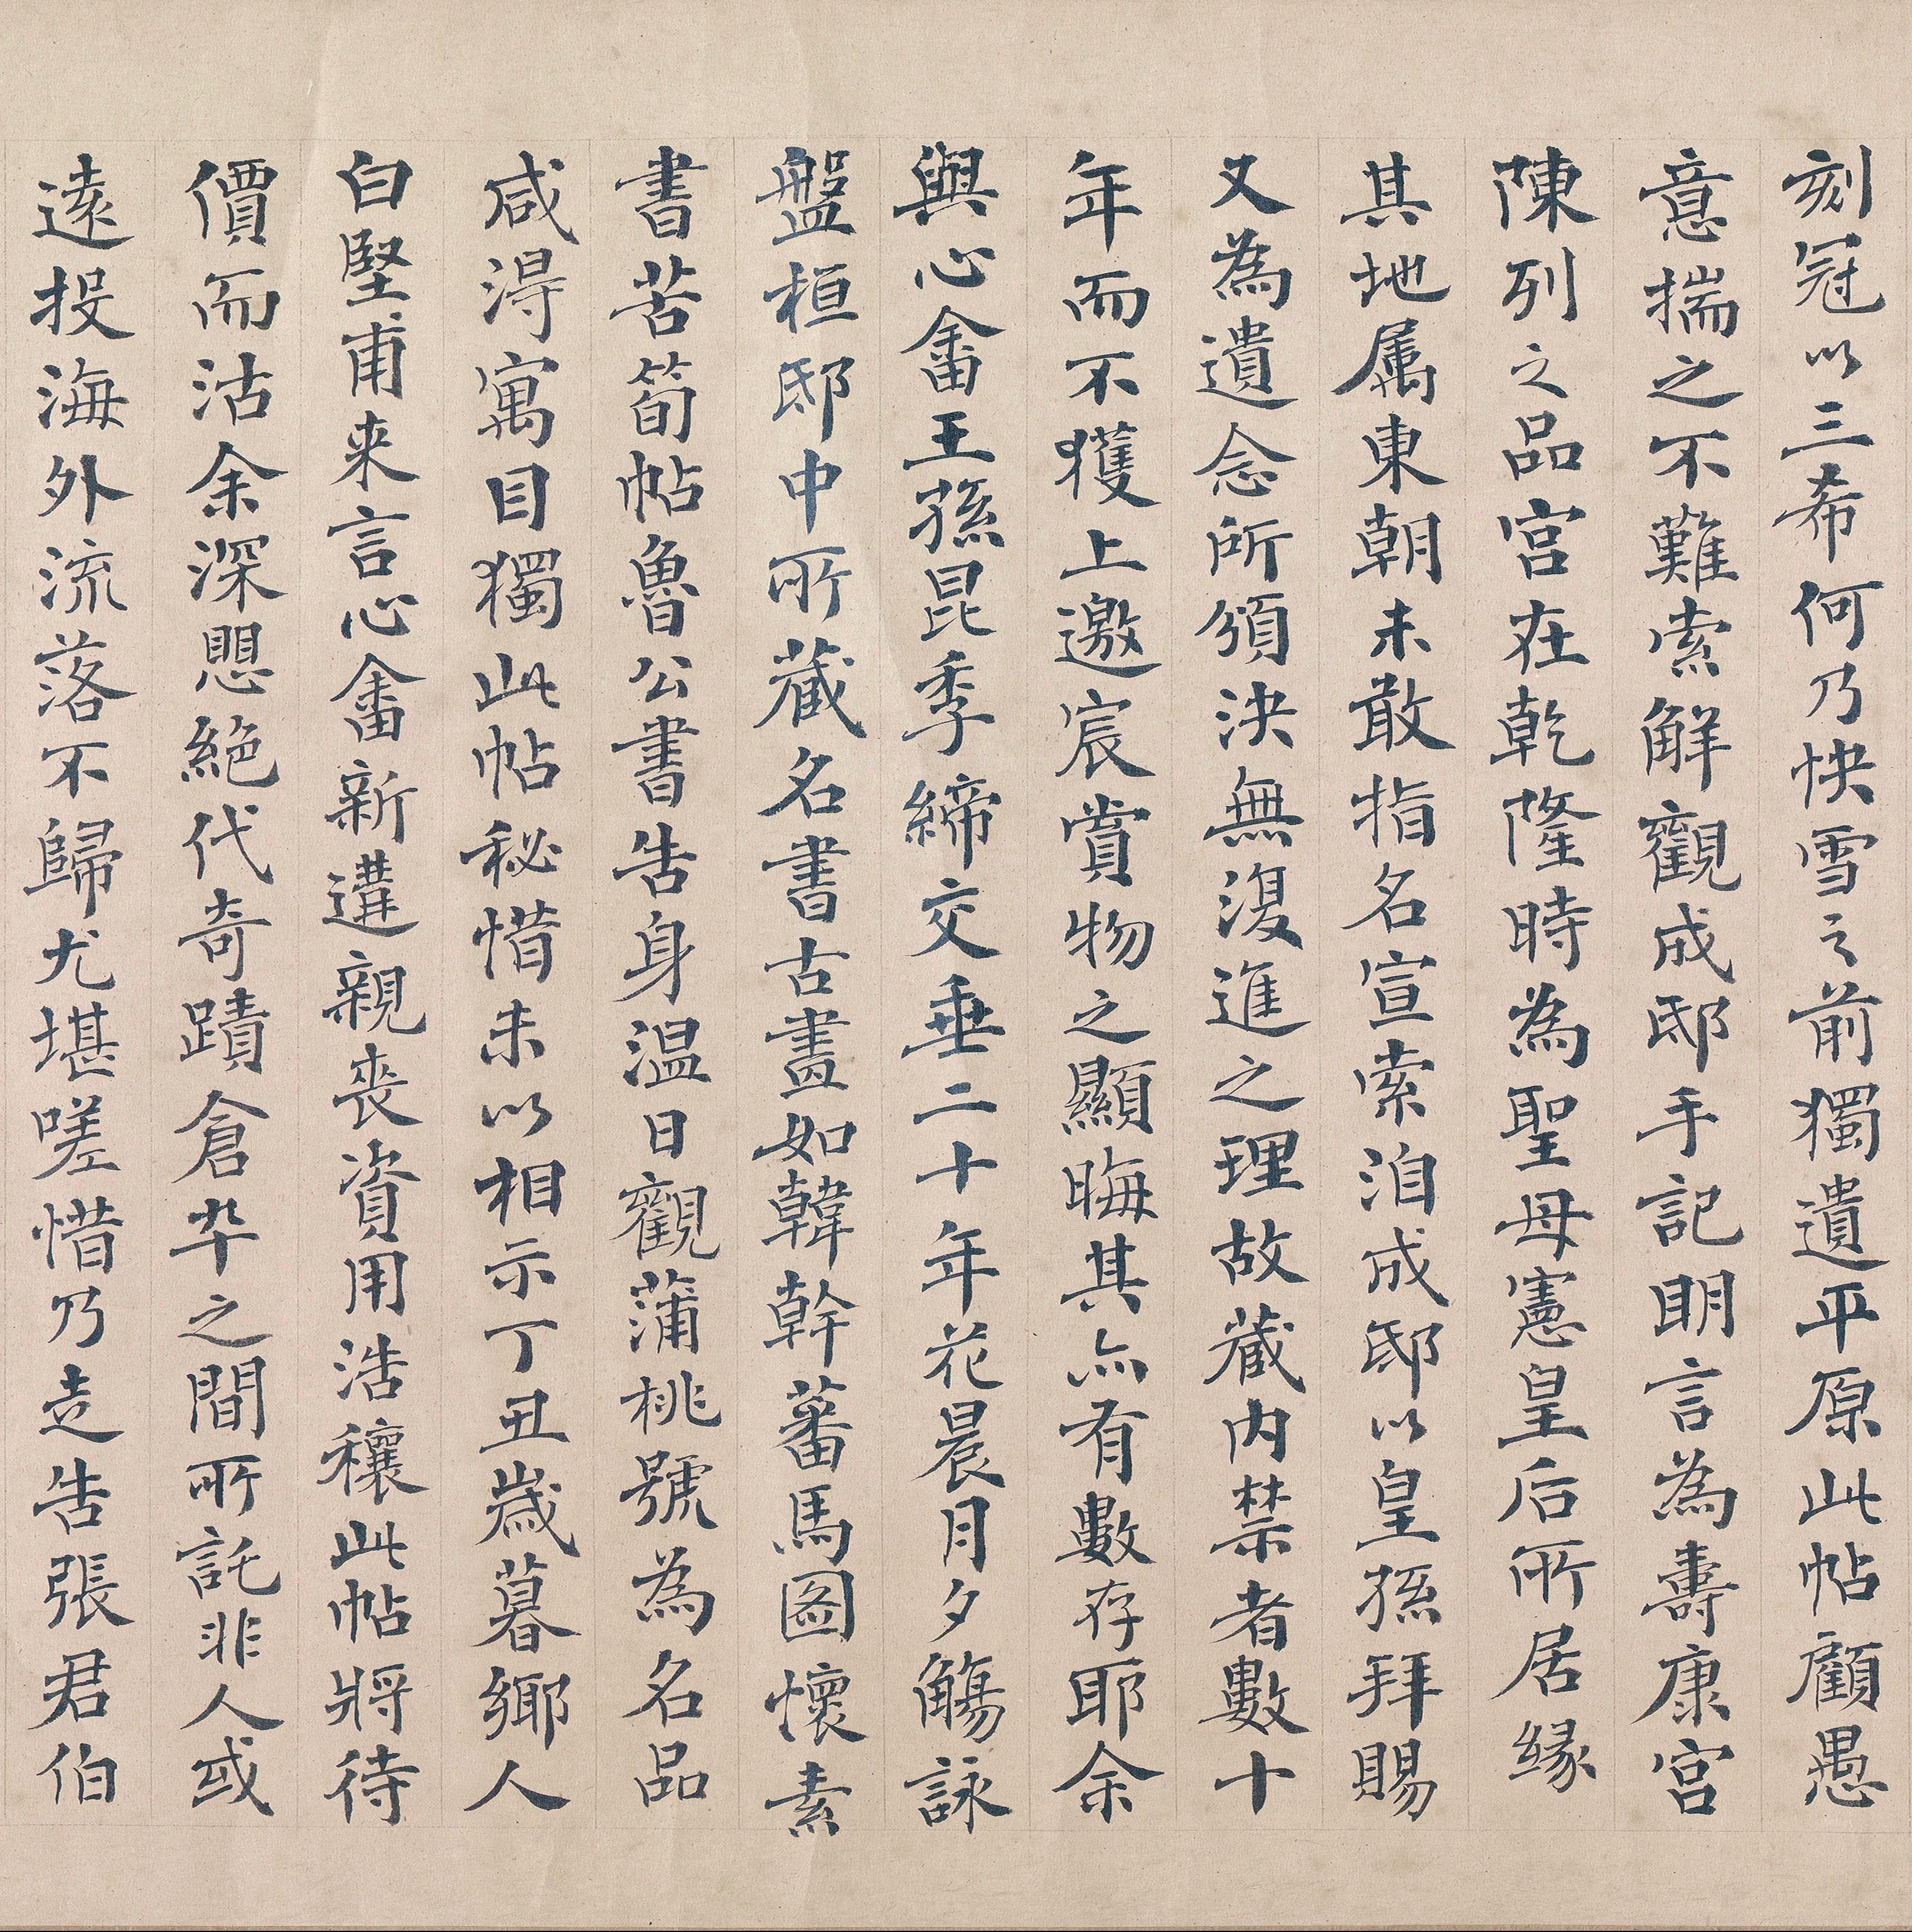 刻冠以三希何乃快雪之前獨遺平原此帖顧愚
意揣之不難索解觀成邸手記明言為壽康宮
陳列之品宮在乾隆時為聖母憲皇后所居緣
其地属東朝未敢指名宣索洎成邸以皇孫拜賜
又為遺念所頒決無復進之理故藏内禁者數十
年而不獲上邀宸賞物之顯晦其亦有數存耶余
與心畬王孫昆季締交垂二十年花晨月夕觴詠
盤桓邸中所藏名書古畫如韓幹蕃馬圖懷素
書苦筍帖魯公書告身温日觀蒲桃號為名品
咸得寓目獨此帖秘惜未以相示丁丑歲暮鄉人
白堅甫来言心畬新遘親喪資用浩穰此帖將待
價而沽余深思絕代奇蹟倉卒之間所託非人或
遠投海外流落不歸尤堪嗟惜乃走告張君伯